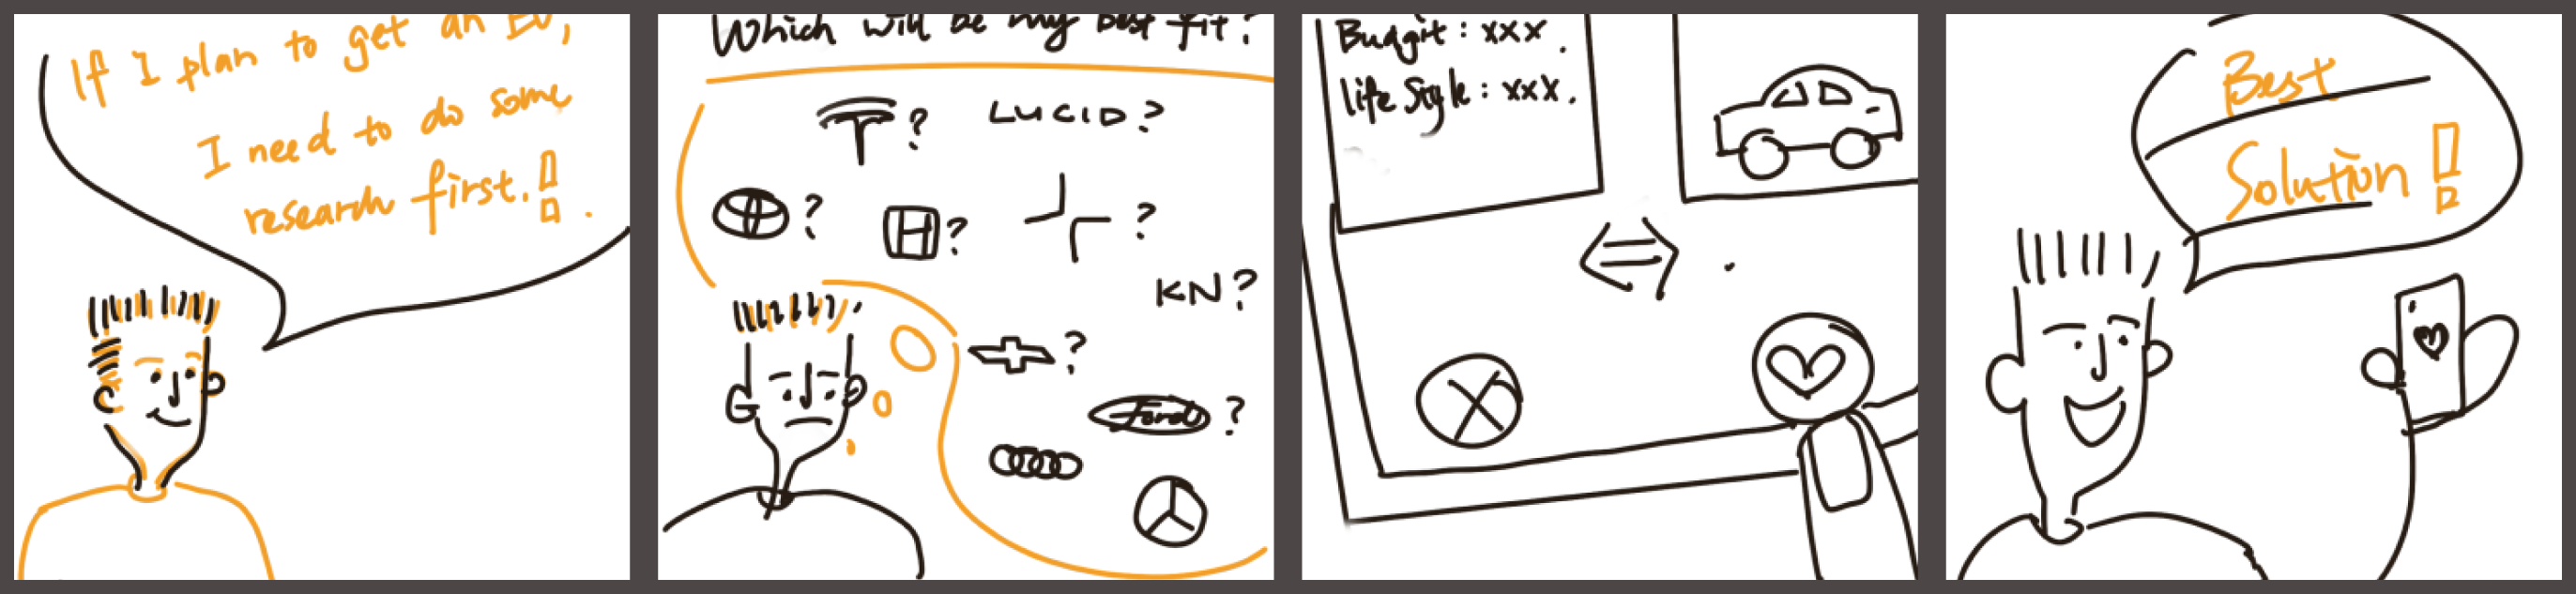 If I plan to get an EV,
I need to do some
research first.!
Which will be my best fit?
? LUCID?
? ? ?
KN?
?
Ford ?
Budgit : xxx .
life Style : xxx .
Best
Solution !